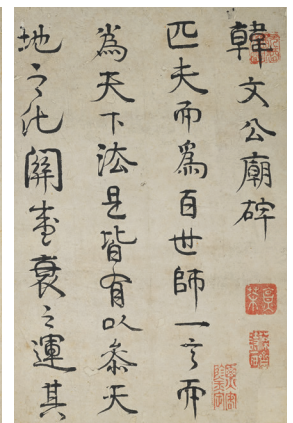 韓文公廟碑
匹夫而為百世師一言而
為天下法是皆有以參天
地之化關盛衰之運其